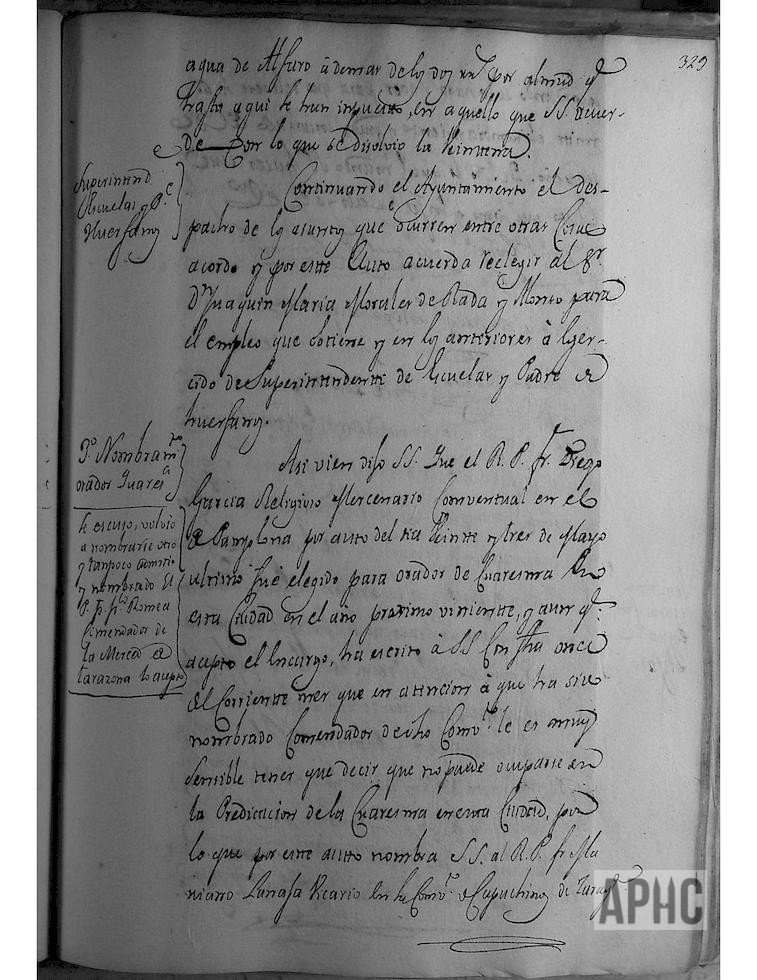 329
agua de Alfaro à demas de los dos rrs por almud qe
hasta aqui se han impuesto, en aquello que SS. acuer-
de Con lo que se disolvio la Veintena.
Superintend
Escuelas y Pe
Huerfanos
Continuando el Ayuntamiento el des-
pacho de los asuntos que ocurren entre otras Cosas
acordo y por este Auto acuerda reelegir al Sr.
Dn Juaquin Maria Morales de Rada y Monto para
el empleo que obtiene y en los anteriores à exer-
cido de Superintendente de Escuelas y Padre de
huerfanos.
Jo. Nombramto
orador Quaresma
Asi vien dijo SS. Que el R. P. fr. Diego
Garcia Religioso Mercenario Comventual en el
de Pamplona por auto del dia Veinte y tres de Mayo
ultimo fué elegido para orador de Cuaresma en
esta Ciudad en el año proximo viniente, y aunqe.
acepto el Encargo, ha escrito à SS Con fha once
del Corriente mes que en atencion à que ha sido
nombrado Comendador de dho Comvto. le es muy
Sensible tener que decir que no puede ocuparse en
la Predicacion de la Cuaresma en esta Ciudad, por
lo que por este autto nombra SS. al R. P. fr Ma
riano Vicario en la Comvo. de Capuchinos de Taraza
Se escuso, volvio
a nombrarse otro
y tampoco admitio
y nombrado el
P. Pr. fr. Romea
Comendador de
la Merced de
tarazona lo acepto
APHC